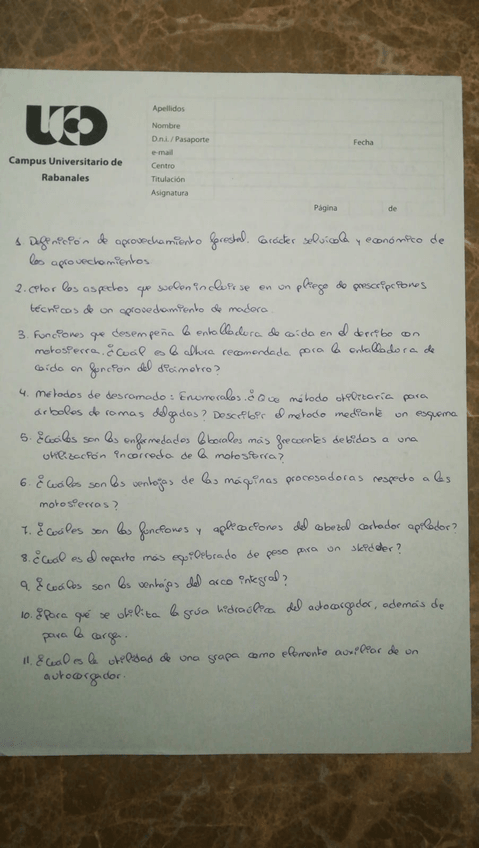 UCO
Campus Universitario de
Rabanales
Apellidos
Nombre
D.n.i. / Pasaporte
Fecha
e-mail
Centro
Titulación
Asignatura
Página de
1. Definición de aprovechamiento forestal. Carácter selvícola y económico de
los aprovechamientos.
2. Citar los aspectos que suelen incluirse en un pliego de prescripciones
técnicas de un aprovechamiento de madera.
3. Funciones que desempeña la entalladora de caída en el derribo con
motosierra. ¿Cuál es la altura recomendada para la entalladora de
caída en función del diámetro?
4. Métodos de desramado: Enumeralos. ¿Que método utilizaría para
árboles de ramas delgadas? Describir el método mediante un esquema
5. ¿Cuáles son las enfermedades laborales más frecuentes debidas a una
utilización incorrecta de la motosierra?
6. ¿Cuáles son las ventajas de las máquinas procesadoras respecto a las
motosierras?
7. ¿Cuáles son las funciones y aplicaciones del cabezal cortador apilador?
8. ¿Cual es el reparto más equilibrado de peso para un skidder?
9. ¿Cuáles son las ventajas del arco integral?
10. ¿Para qué se utiliza la grúa hidraúlica del autocargador, además de
para la carga.
11. ¿Cual es la utilidad de una grapa como elemento auxiliar de un
autocargador.